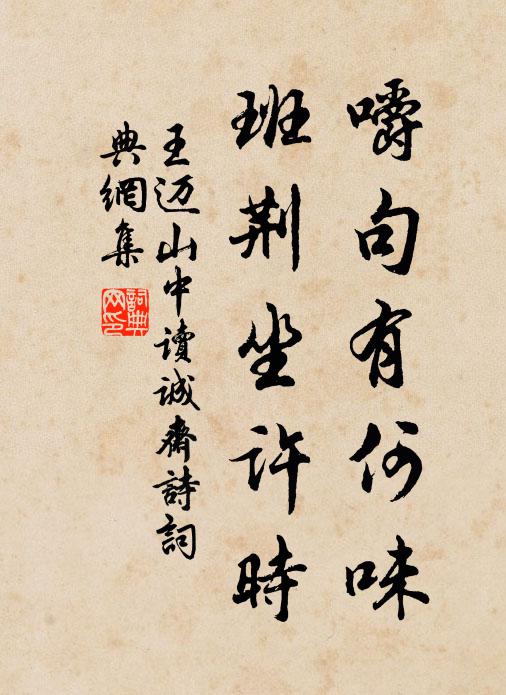 嚼句有何味
班荆坐许時
王迈山中讀诚齋詩詞
典網集
詞典网印